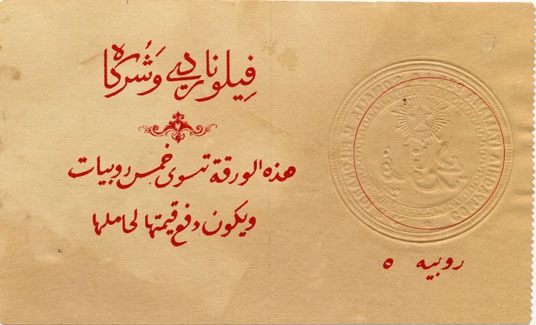 فيلوناردي وَشُركاه
هذه الورقة تسوى خمس روبيات
ويكون دفع قيمتها لحاملها
روبيه ٥